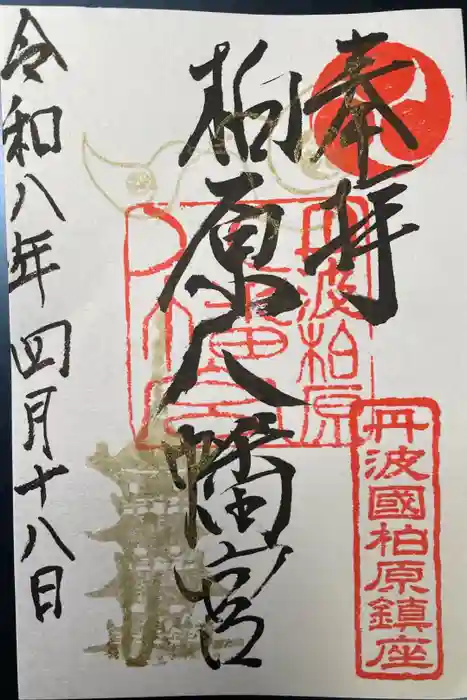 奉拝
柏原八幡宮
令和八年四月十八日
丹波柏原
八幡宮
丹波國柏原鎮座